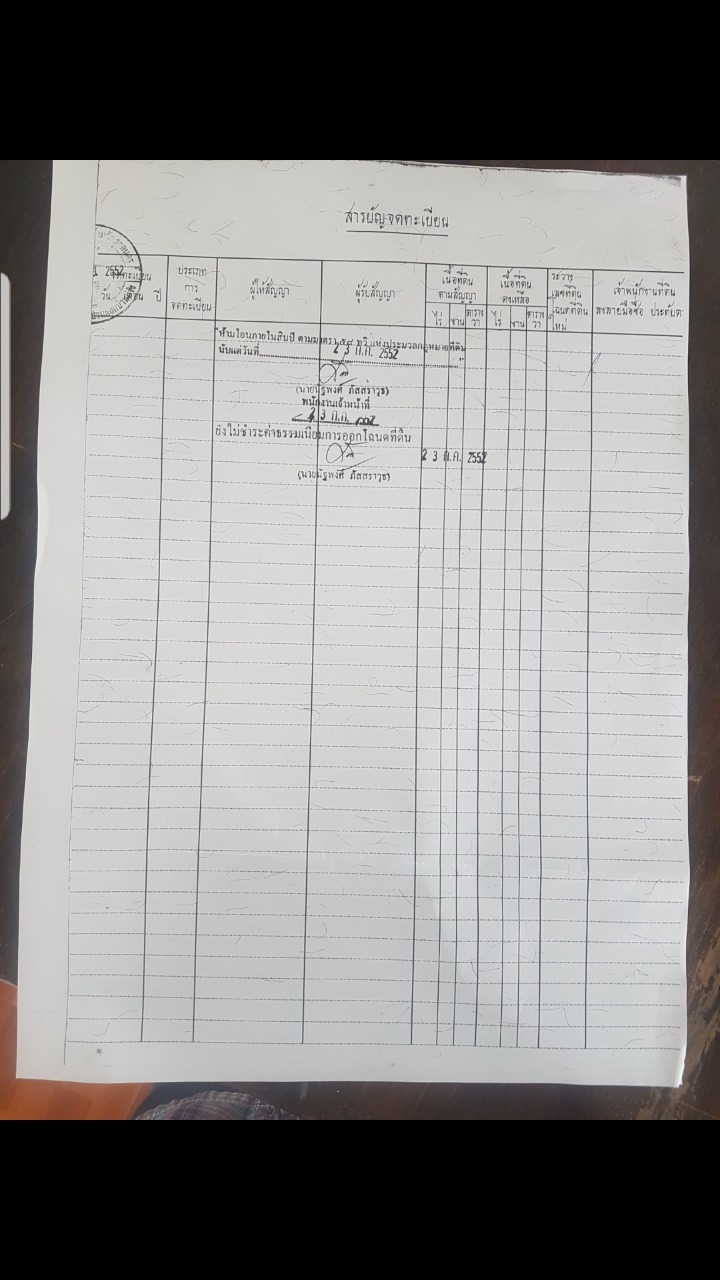 สารบัญจดทะเบียน
2552
จดทะเบียน
วัน เดือน ปี
ประเภท
การ
จดทะเบียน
ผู้ให้สัญญา
ผู้รับสัญญา
เนื้อที่ดิน
ตามสัญญา
ไร่ งาน ตาราง
วา
เนื้อที่ดิน
คงเหลือ
ไร่ งาน ตาราง
วา
ระวาง
เลขที่ดิน
โฉนดที่ดิน
ใหม่
เจ้าพนักงานที่ดิน
ลงลายมือชื่อ ประทับตา
"ห้ามโอนภายในสิบปี ตามมาตรา ๕๘ ทวิ แห่งประมวลกฎหมายที่ดิน
นับแต่วันที่ 2 3 ก.ค. 2552 "
(นายณัฐพงศ์ ภัสสราวุธ)
พนักงานเจ้าหน้าที่
2 3 ก.ค. 2552
ยังไม่ชำระค่าธรรมเนียมการออกโฉนดที่ดิน
2 3 ก.ค. 2552
(นายณัฐพงศ์ ภัสสราวุธ)